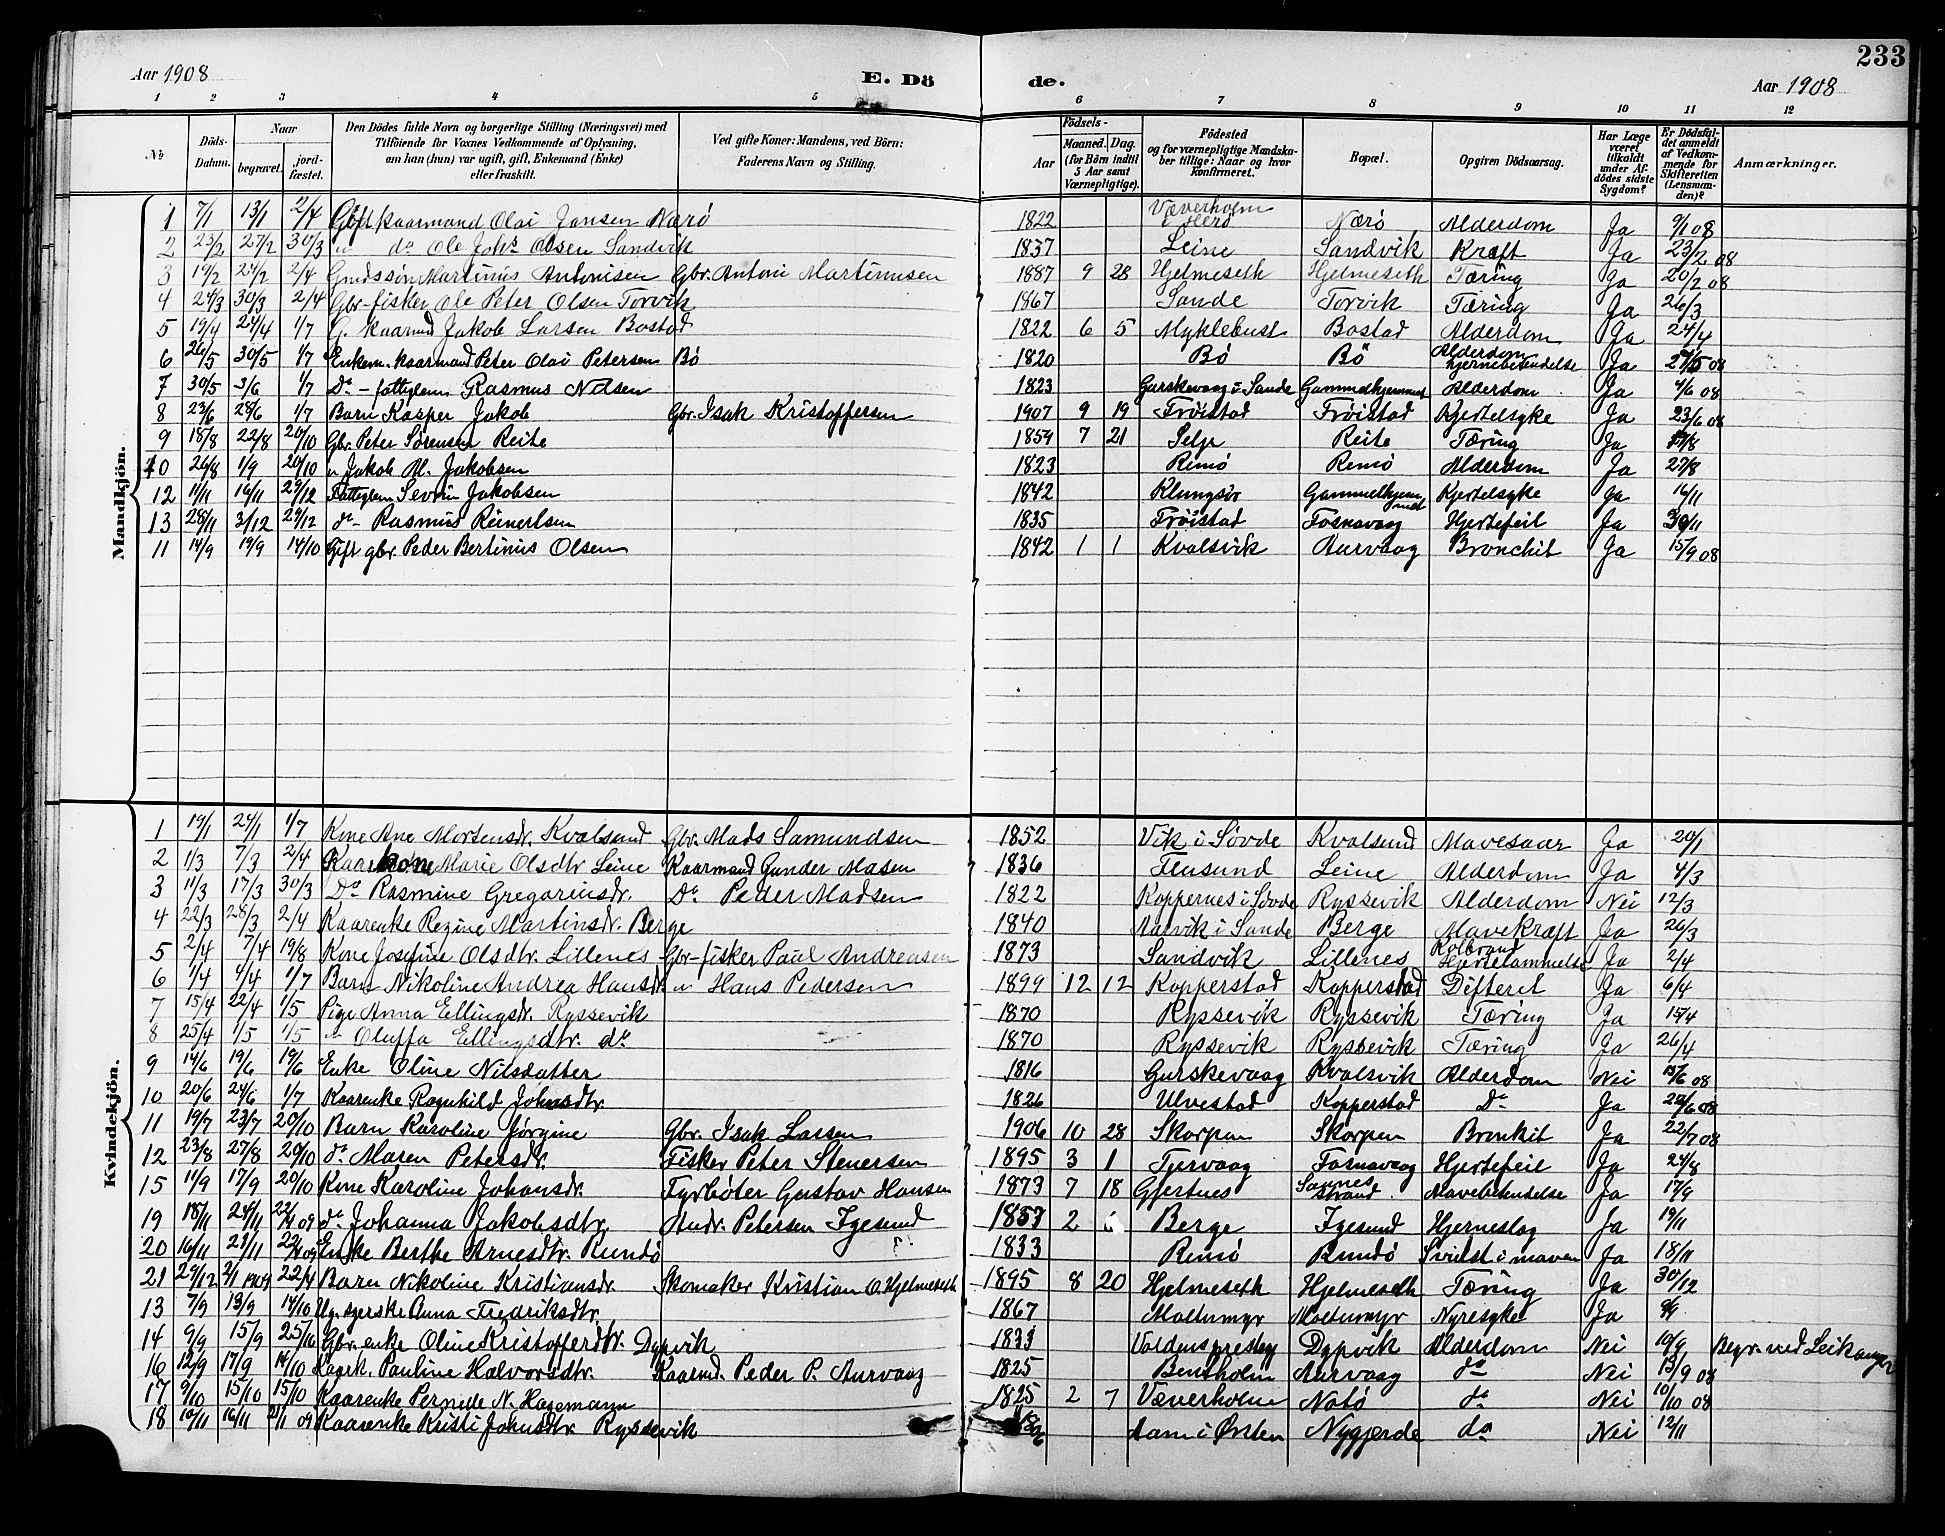 233
Aar 1908 E. Dö de. Aar 1908
1 2 3 4 5 6 7 8 9 10 11 12
№ Döds-Datum. Naar begravet. jordfæstet. Den Dödes fulde Navn og borgerlige Stilling (Næringsvei) med Tilföiende for Voxnes Vedkommende af Oplysning, om han (hun) var ugift, gift, Enkemand (Enke) eller fraskilt. Ved gifte Koner: Mandens, ved Börn: Faderens Navn og Stilling. Födsels- Aar Maaned. Dag. (for Börn indtil 5 Aar samt Værnepligtige). Födested og for værnepligtige Mandskaber tillige: Naar og hvor konfirmeret. Bopæl. Opgiven Dödsaarsag. Har Læge været tilkaldt under Afdödes sidste Sygdom? Er Dödsfaldet anmeldt af Vedkommende for Skifteretten (Lensmanden)? Anmærkninger.
Mandkjön.
1 7/1 13/1 2/4 Gift kaarmand Olai Jansen Nærö 1822 Væverholm i Herö Nærö Alderdom Ja 9/1 08
2 23/2 27/2 30/3 " do Ole Johs Olsen Sandvik 1837 Leine Sandvik Kræft Ja 23/2 08
3 19/2 24/2 2/4 Gmdssön Martinus Antonisen Gbr. Antoni Martinusen 1887 9 28 Hjelmeseth Hjelmeseth Tæring Ja 20/2 08
4 24/3 30/3 2/4 Gbr-fisker Ole Peter Olsen Torvik 1867 Sande Torvik Tæring Ja 26/3
5 19/4 24/4 1/7 G. kaarmd Jakob Larsen Bostad 1822 6 5 Myklebust Bostad Alderdom Ja 24/4
6 26/5 30/5 1/7 Enkem. kaarmand Peter Olai Petersen Bö 1820 Bö Bö Alderdom hjernebetendelse Ja 27/5 08
7 30/5 3/6 1/7 Do - fattiglem Rasmus Nilsen 1823 Gurskevaag i Sande Gammelhjemmet Alderdom Ja 4/6 08
8 23/6 28/6 1/7 Barn Kasper Jakob Gbr. Isak Kristoffersen 1907 9 19 Fröistad Fröistad Kjertelsyke Ja 23/6 08
9 18/8 22/8 20/10 Gbr. Peter Sörensen Reite 1854 7 21 Selje Reite Tæring Ja
10 26/8 1/9 20/10 " Jakob M. Jakobsen 1823 Remö Remö Alderdom Ja 27/8
12 11/11 16/11 29/12 Fattiglem Sevrin Jakobsen 1842 Klungsör Gammelhjemmet Kjertelsyke Ja 16/11
13 28/11 3/12 29/12 do - Rasmus Reinertsen 1835 Fröistad Fosnavaag Hjertefeil Ja 30/11
11 14/9 19/9 14/10 Gift gbr. Peder Bertinius Olsen 1842 1 1 Kvalsvik Aurvaag Bronchit Ja 15/9 08
Kvindekjön.
1 19/1 24/1 1/7 Kone Ane Mortensdr. Kvalsund Gbr. Mads Samundsen 1852 Vik i Sövde Kvalsund Mavesaar Ja 20/1
2 1/3 7/3 2/4 Kaarkone Marie Olsdtr Leine Kaarmand Gunder Masen 1836 Flusund Leine Alderdom Ja 4/3
3 11/3 17/3 30/3 Do Rasmine Gregariusdr. Do Peder Madsen 1822 Koppernes i Sövde Ryssevik Alderdom Nei 12/3
4 22/3 28/3 2/4 Kaarenke Regine Martinsdr. Berge 1840 Aarvik i Sande Berge Mavekræft Ja 26/3
5 2/4 7/4 19/8 Kone Josefine Olsdtr. Lillenes Gbr-fisker Paul Andreasen 1873 Sandvik Lillenes Kolbrand Hjertelammelse Ja 2/4
6 1/4 4/4 1/7 Barn Nikoline Andrea Hansdr. " Hans Pedersen 1899 12 12 Kopperstad Kopperstad Difterit Ja 6/4
7 15/4 22/4 1/5 Pige Anna Ellingsdr. Ryssevik 1870 Ryssevik Ryssevik Tæring Ja 15/4
8 25/4 1/5 1/5 " Oluffa Ellingsdtr. do 1870 Ryssevik Ryssevik Tæring Ja 26/4
9 14/6 19/6 19/6 Enke Oline Nilsdatter 1816 Gurskevaag Kvalsvik Alderdom Nei 15/6 08
10 20/6 24/6 1/7 Kaarenke Ragnhild Johnsdtr. 1826 Ulvestad Kopperstad Do Ja 20/6 08
11 19/7 23/7 20/10 Barn Karoline Jörgine Gbr. Isak Larsen 1906 10 28 Skorpen Skorpen Bronkit Ja 22/7 08
12 23/8 27/8 20/10 do Maren Petersdr. Fisker Peter Stenersen 1895 3 1 Tjervaag Fosnavaag Hjertefeil Ja 24/8
15 11/9 17/9 20/10 Kone Karoline Johansdr. Fyrböter Gustav Hansen 1873 7 18 Gjertnes Sannes strand Mavebetendelse Ja 17/9
19 18/11 24/11 22/4 09 do Johanna Jakobsdtr. Andr. Petersen Igesund 1857 2 Berge Igesund Hjerneslag Ja 19/11
20 16/11 21/11 22/4 09 Enke Berthe Arnesdtr. Rundö 1833 Remö Rundö Svulst i maven Ja 18/11
21 29/12 2/1 1909 22/4 Barn Nikoline Kristiansdr. Skomaker Kristian O. Hjelmeseth 1895 8 20 Hjelmeseth Hjelmeseth Tæring Ja 30/12
13 7/9 13/9 14/10 Anna Fredriksdtr. 1867 Moltumyr Moltumyr Nyresyke Ja 9/9
14 9/9 15/9 25/10 Gbr. enke Oline Kristofferdtr. Dypvik 1833 Voldens prestegj Dypvik Alderdom Nei 10/9 Begr. ved Leikanger
16 12/9 17/9 14/10 Kaark. Pauline Halvorsdtr. Kaarmd. Peder P. Aurvaag 1825 Bensholm Aurvaag do Nei 13/9 08
17 9/10 15/10 15/10 Kaarenke Pernede N. Hagemann 1825 2 7 Væverholm Notö do Nei 10/10 08
18 10/11 16/11 21/1 09 Kaarenke Kristi Johnsdtr. Ryssevik 1826 Aam i Örsten Nygjerde do Nei 12/11